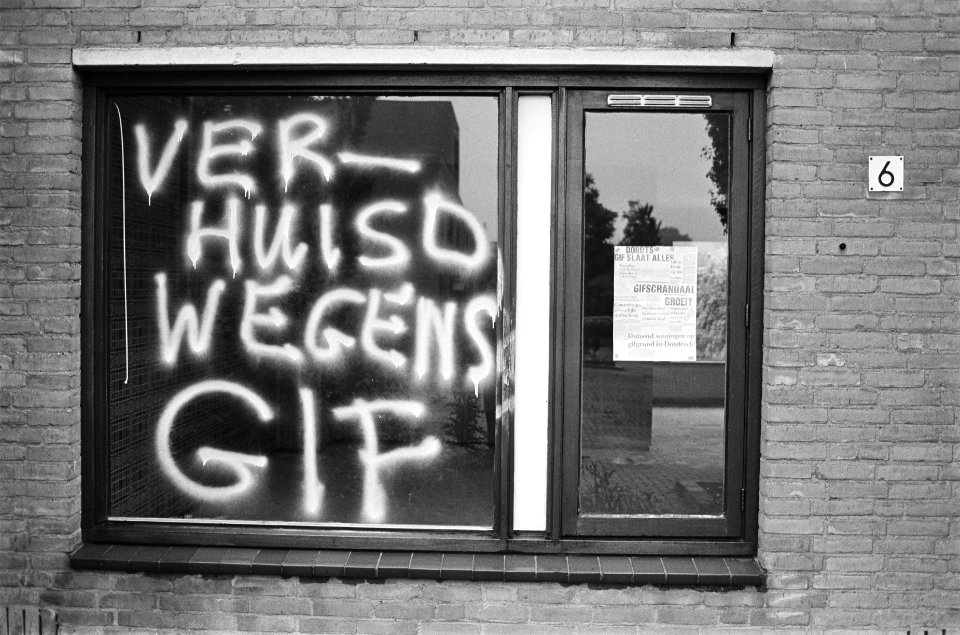 VER-
HUISD
WEGENS
GIF
6
DORDTS
GIF SLAAT ALLES
GIFSCHANDAAL
GROEIT
Duizend woningen op
gifgrond in Dordrecht